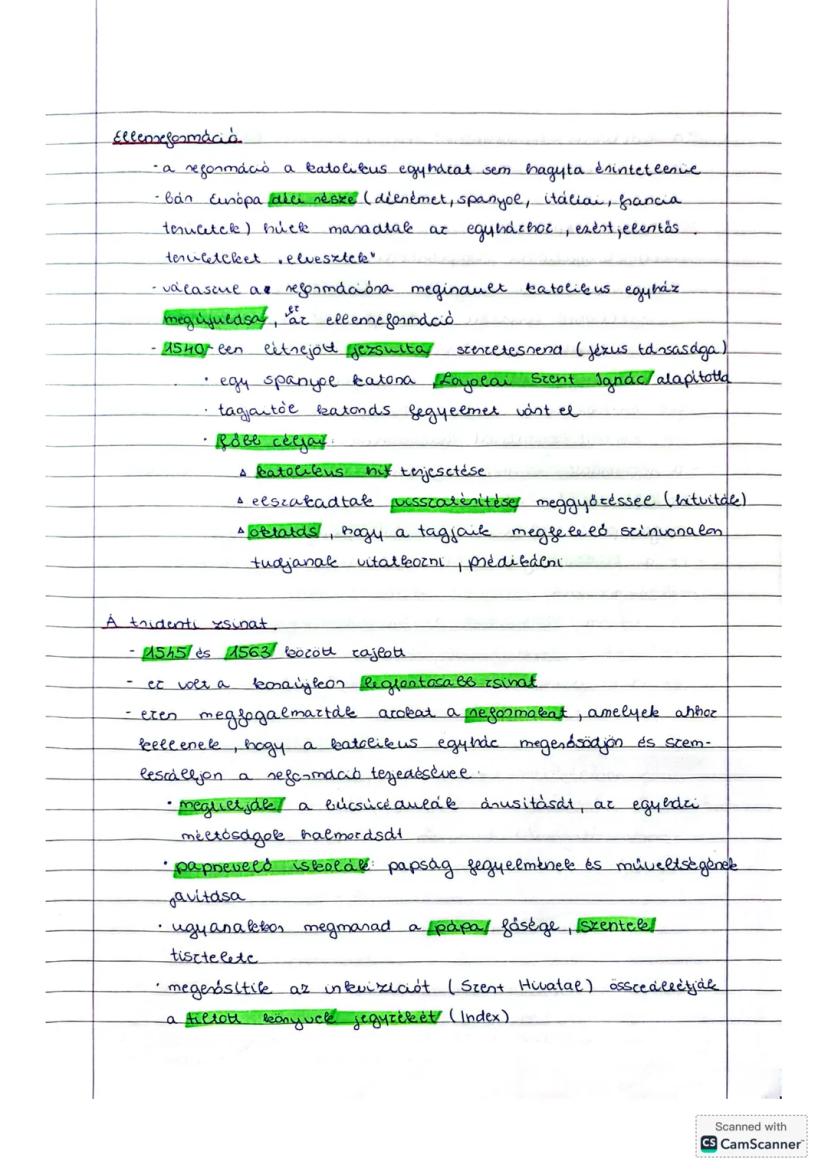 Ellenreformáció
- a reformáció a katolikus egyházat sem hagyta érintetlenül
- bár Európa déli része (délnémet, spanyol, itáliai, francia
területek) hűek maradtak az egyházhoz, ezért jelentős
területeket „elvesztek"
- válaszul a reformációra megindult katolikus egyház
megújulása, ez az ellenreformáció
- 1540-ben létrejött jezsuita szerzetesrend (Jézus társasága)
• egy spanyol katona Loyolai Szent Ignác alapította
• tagjaitól katonás fegyelmet várt el
• főbb céljai:
▵ katolikus hit terjesztése
▵ elszakadtak visszatérítése meggyőzéssel (hitviták)
▵ oktatás, hogy a tagjaik megfelelő színvonalon
tudjanak vitatkozni, prédikálni
A tridenti zsinat
- 1545 és 1563 között zajlott
- ez volt a koraújkor legfontosabb zsinat
- ezen megfogalmazták azokat a reformokat, amelyek ahhoz
kellenek, hogy a katolikus egyház megerősödjön és szem-
beszálljon a reformáció terjedésével.
• megtiltják a búcsúcédulák árusítását, az egyházi
méltóságok halmozását
• papnevelő iskolák: papság fegyelmének és műveltségének
javítása
• ugyanakkor megmarad a pápa fősége, szentek
tisztelete
• megerősítik az inkvizíciót (Szent Hivatal) összeállítják
a tiltott könyvek jegyzékét (Index)
Scanned with
CS CamScanner